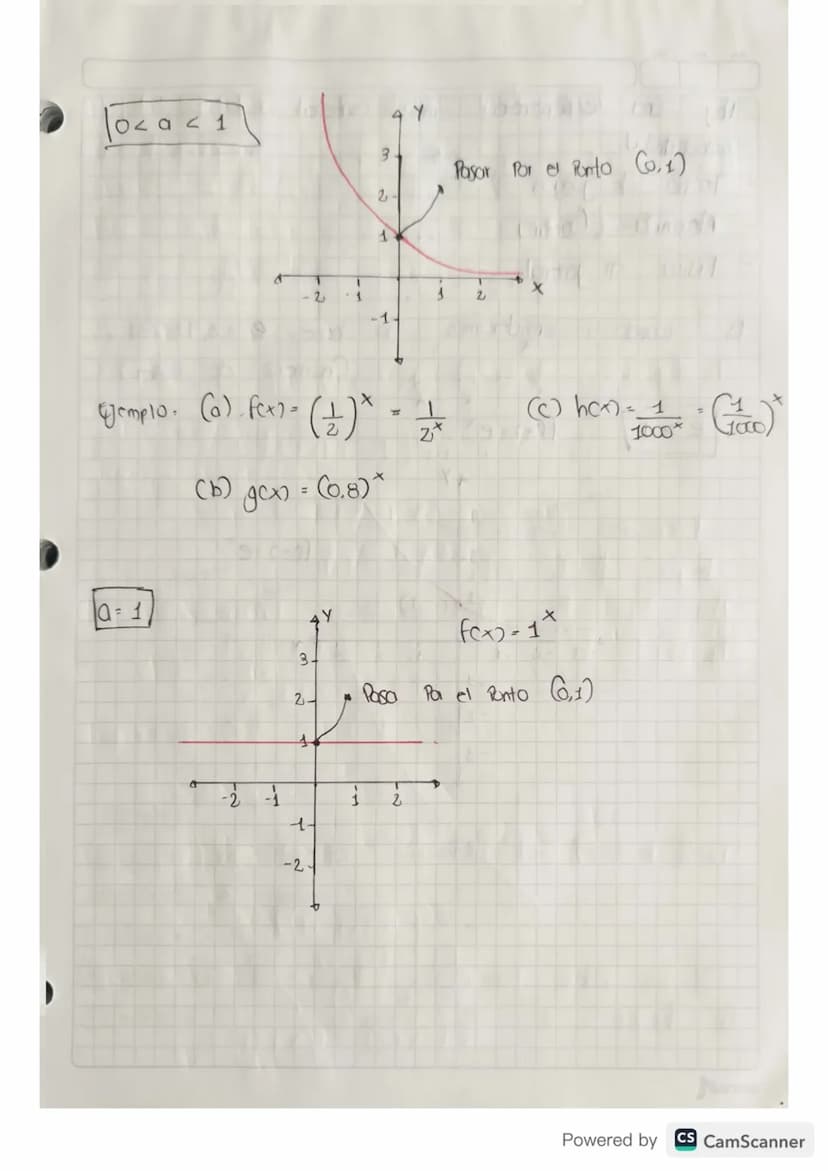 0 < a < 1
Y
3
Pasar Por el Punto (0,1)
2
1
-2 -1 1 2 X
-1
Ejemplo. (a) f(x) = (1/2)^x = 1/2^x (c) h(x) = 1/1000^x = (1/1000)^x
(b) g(x) = (0.8)^x
a = 1
Y
f(x) = 1^x
3
2 Pasa Por el Punto (0,1)
1
-2 -1 1 2
-1
-2
Powered by CS CamScanner